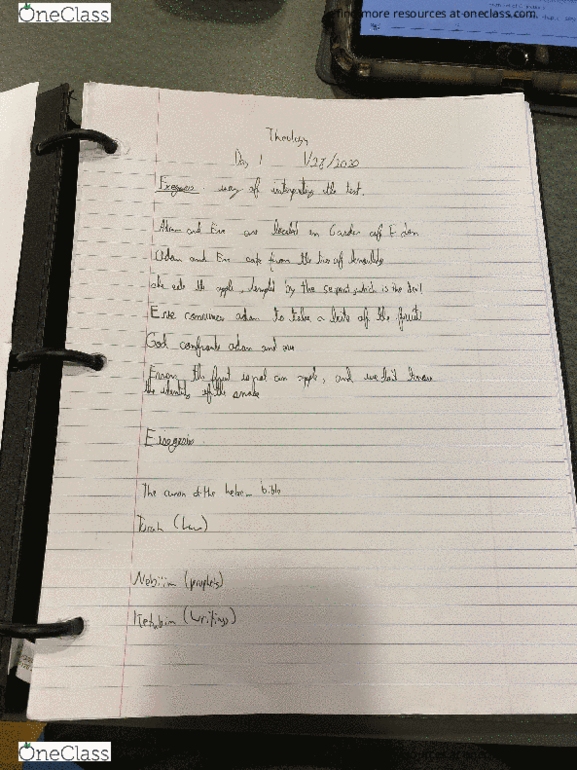 OneClass
find more resources at oneclass.com
Theology
Day 1 1/28/2020
Exegesis: way of interpreting the text.
Adam and Eve are located in Garden of Eden
Adam and Eve eat from the tree of knowledge
she eats the apple, tempted by the serpent, which is the devil
Eve convinces adam to take a bite of the fruit
God confronts adam and eve
the fruit is not an apple, and we don't know
the identity of the snake
Eisegesis
The canon of the hebrew bible
Torah (Law)
Nebiim (prophets)
Ketubim (writings)
OneClass